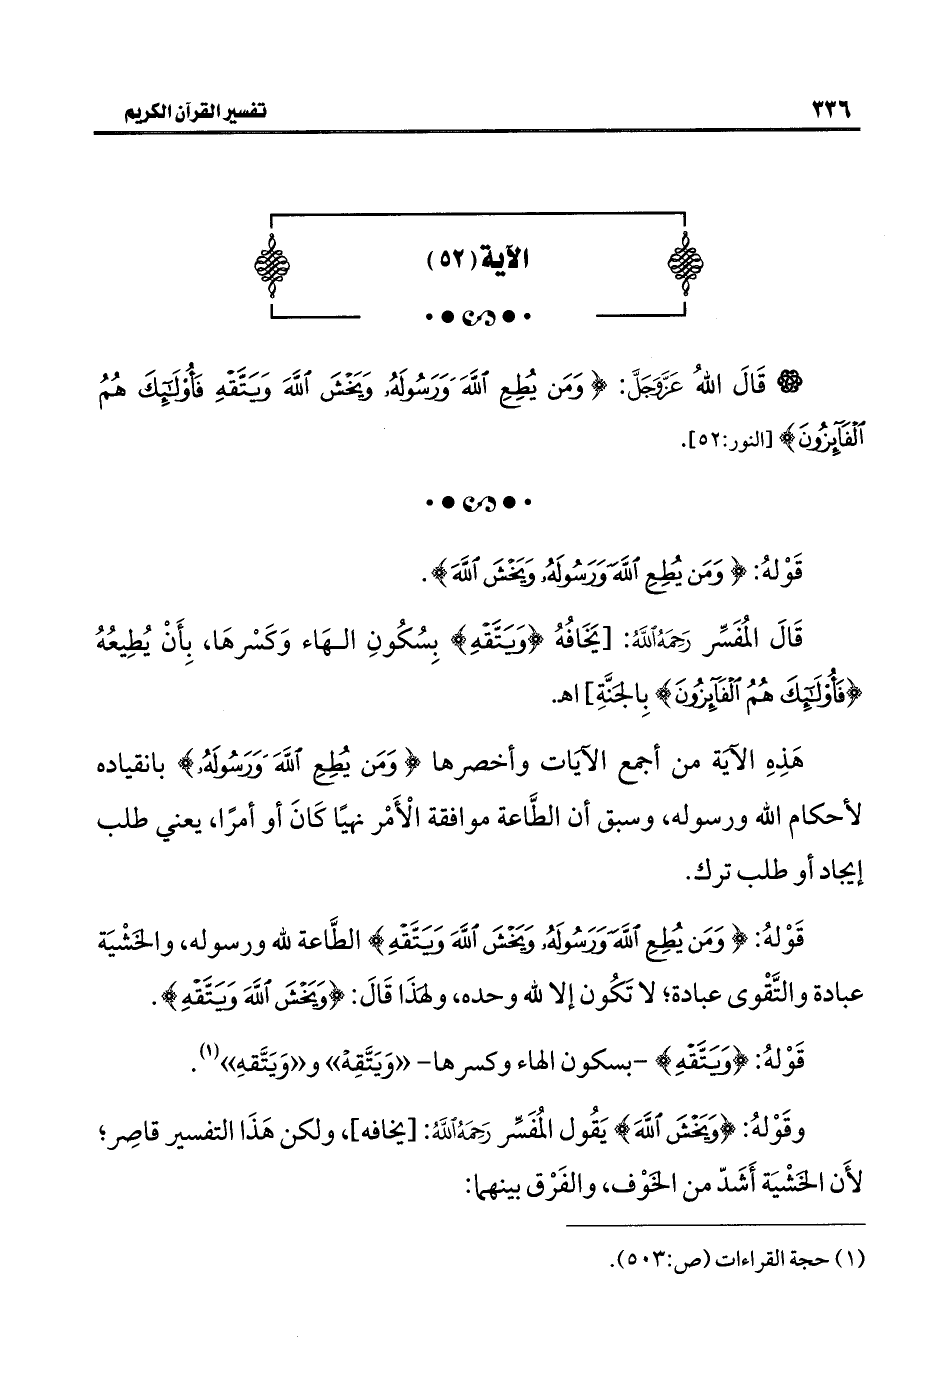 ٣٣٦
تفسير القرآن الكريم
الآية (٥٢)
قَالَ اللهُ عَزَّوَجَلَّ: ﴿ وَمَن يُطِعِ ٱللَّهَ وَرَسُولَهُۥ وَيَخْشَ ٱللَّهَ وَيَتَّقْهِ فَأُوْلَٰٓئِكَ هُمُ
ٱلْفَآئِزُونَ﴾ [النور:٥٢].
قَوْلهُ: ﴿ وَمَن يُطِعِ ٱللَّهَ وَرَسُولَهُۥ وَيَخْشَ ٱللَّهَ﴾.
قَالَ المُفَسِّر رَحِمَهُ اللَّهُ: [يَخَافُهُ ﴿وَيَتَّقْهِ﴾ بِسُكُونِ الـهَاء وَكَسْرِهَا، بِأَنْ يُطِيعُهُ
﴿فَأُوْلَٰٓئِكَ هُمُ ٱلْفَآئِزُونَ﴾ بِالجَنَّةِ] اهـ.
هَذِهِ الآيَة من أجمع الآيَات وأخصرها ﴿ وَمَن يُطِعِ ٱللَّهَ وَرَسُولَهُۥ﴾ بانقياده
لأحكام الله ورسوله، وسبق أن الطَّاعة موافقة الْأَمْر نهيًا كَانَ أو أمرًا، يعني طلب
إيجاد أو طلب ترك.
قَوْلهُ: ﴿ وَمَن يُطِعِ ٱللَّهَ وَرَسُولَهُۥ وَيَخْشَ ٱللَّهَ وَيَتَّقْهِ﴾ الطَّاعة لله ورسوله، والخَشْيَة
عبادة والتَّقْوى عبادة؛ لا تَكُون إلا لله وحده، ولهَذَا قَالَ: ﴿وَيَخْشَ ٱللَّهَ وَيَتَّقْهِ﴾.
قَوْلهُ: ﴿وَيَتَّقْهِ﴾ -بسكون الهاء وكسرها- «وَيَتَّقِهْ» و«وَيَتَّقهِ»(١).
وقَوْلهُ: ﴿وَيَخْشَ ٱللَّهَ﴾ يَقُول المُفَسِّر رَحِمَهُ اللَّهُ: [يخافه]، ولكن هَذَا التفسير قاصِر؛
لأن الخَشْيَة أَشَدّ من الخَوْف، والفَرْق بينهما:
(١) حجة القراءات (ص:٥٠٣).